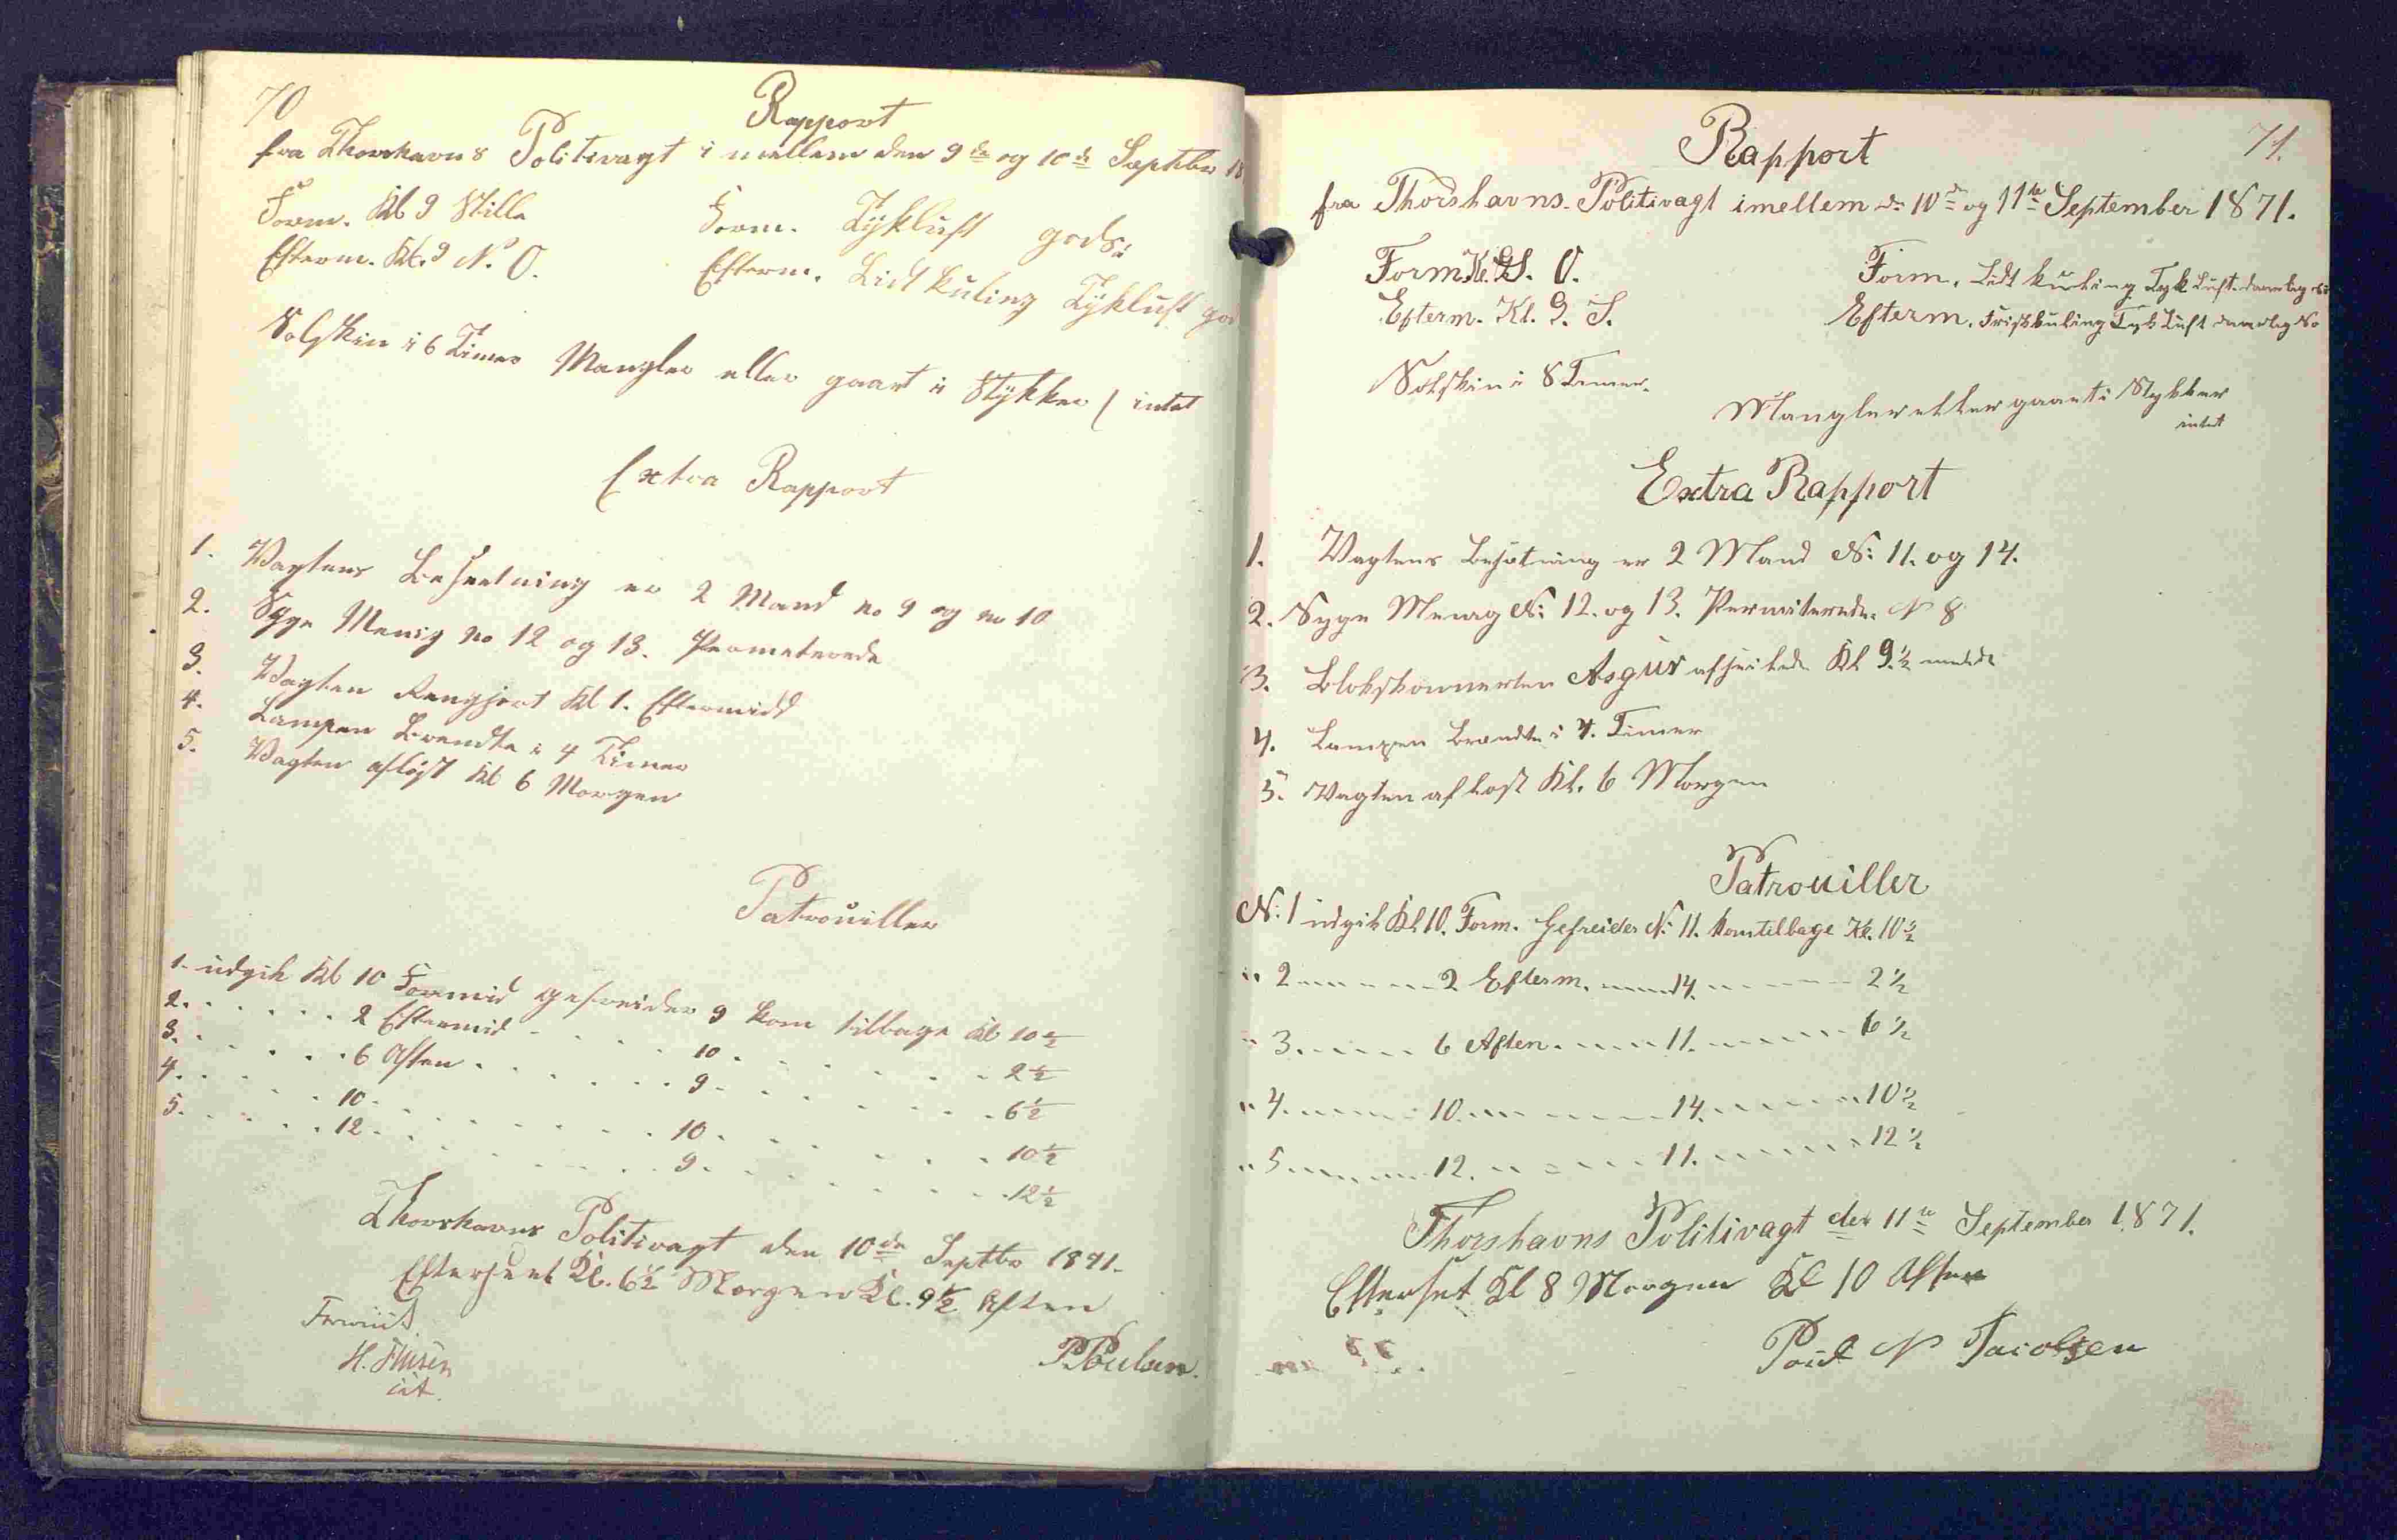 70
Rapport
fra Thorshavns Politivagt i mellem den 9de og 10de Septbr 18
Form. Kl 9 Stille Form. Tykluft gods:
Efterm. Kl. 9 N. O. Efterm. Lidt kuling Tykluft god
Solskin i 6 Timer Mangler eller gaaet i Stykker ( intet
Extra Rapport
1. Vagtens Besætning er 2 Mand no 9 og no 10
2. Syge Menig no 12 og 13. Permeterede
3. Vagten Rengjort Kl 1. Eftermidd
4. Lampen Brendte i 4 Timer
5. Vagten afløst Kl 6 Morgen
Patrouiller
1. udgik Kl 10 Formid gefreider 9 kom tilbage Kl 10 1/2
2. . . . . . 2 Eftermid . . . . 10 . . . . . 2 1/2
3. . . . . . 6 Aften . . . . . . 9 . . . . . . 6 1/2
4. . . . . . 10 . . . . . . . 10 . . . . . . 10 1/2
5. . . . . . 12 . . . . . . . 9 . . . . . . . 12 1/2
Thorshavns Politivagt den 10de Septbr 1871.
Efterseet Kl. 6 1/2 Morgen Kl. 9 1/2 Aften
P Poulsen.
71.
Rapport
fra Thorshavns Politivagt imellem d: 10de og 11te September 1871.
Form Kl. 9 S. O. Form. Lidt kuling Tyk Luft
Efterm. Kl. 9. S. Efterm. Frisk kuling Tyk Luft
Solskin i 8 Timer.
Mangler eller gaaet i Stykker
intet
Extra Rapport
1. Vagtens Besætning er 2 Mand N: 11. og 14.
2. Syge Menig N: 12. og 13. Permiterede N 8
3. Asgur afseilede Kl 9. 1/2
4. Lampen Brændte i 4. Timer
5. Vagten aflost Kl. 6 Morgen
Patrouiller
N: 1 udgik Kl 10. Form. Gefreider N: 11. kom tilbage Kl. 10 1/2
" 2 - - - - - 2 Efterm. - - - 14. - - - - - 2 1/2
" 3. - - - - 6 Aften. - - - - 11. - - - - - 6 1/2
" 4. - - - - 10. - - - - - - 14. - - - - - 10 1/2
" 5. - - - - 12. - - - - - 11. - - - - - 12 1/2
Thorshavns Politivagt den 11te September 1871.
Efterset Kl 8 Morgen Kl 10 Aften
Poul N Jacobsen